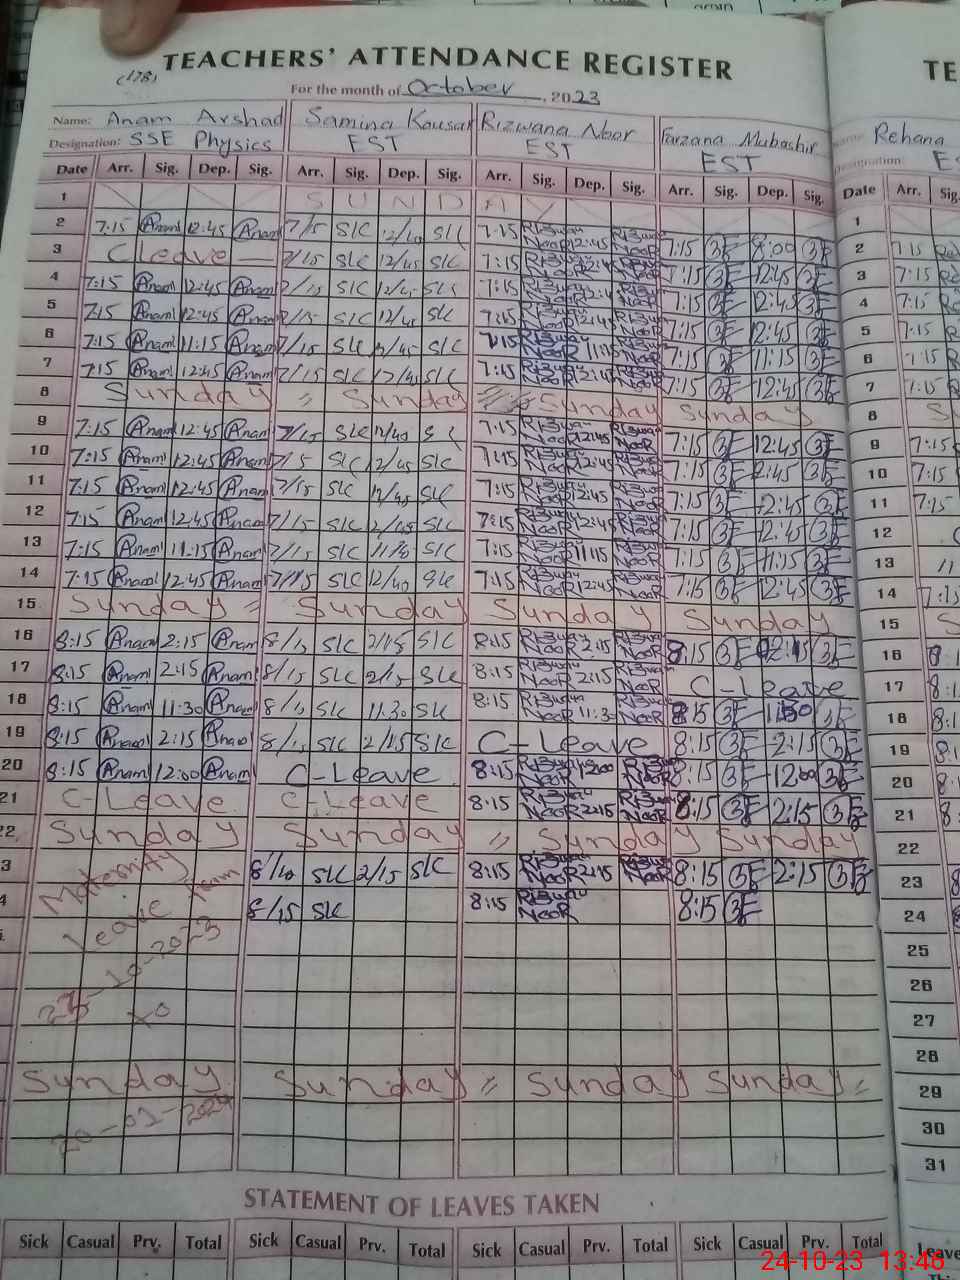 TEACHERS' ATTENDANCE REGISTER TE
(178)
For the month of October, 2023
Name: Anam Arshad Samina Kousar Rizwana Noor Farzana Mubashir Name: Rehana
Designation: SSE Physics EST EST EST Designation: ES
Date Arr. Sig. Dep. Sig. Arr. Sig. Dep. Sig. Arr. Sig. Dep. Sig. Arr. Sig. Dep. Sig. Date Arr. Sig.
1 SUNDAY 1
2 7:15 Anam 12:45 Anam 7/15 SK 12/40 SK 7:15 Rizwana Noor 12:45 Rizwana Noor 7:15 8:00 2 7:15
3 C Leave — 7/15 SK 12/45 SK 7:15 Rizwana Noor 12:45 Rizwana Noor 7:15 12:45 3 7:15
4 7:15 Anam 12:45 Anam 7/15 SK 12/45 SK 7:15 Rizwana Noor 12:45 Rizwana Noor 7:15 12:45 4 7:15
5 7:15 Anam 12:45 Anam 7/15 SK 12/45 SK 7:15 Rizwana Noor 12:45 Rizwana Noor 7:15 12:45 5 7:15
6 7:15 Anam 11:15 Anam 7/15 SK 12/45 SK 7:15 Rizwana Noor 11:15 Rizwana Noor 7:15 11:15 6 7:15
7 7:15 Anam 12:45 Anam 7/15 SK 12/45 SK 7:15 Rizwana Noor 12:45 Rizwana Noor 7:15 12:45 7 7:15
8 Sunday = Sunday Sunday Sunday 8 S
9 7:15 Anam 12:45 Anam 7/15 SK 12/40 SK 7:15 Rizwana Noor 12:45 Rizwana Noor 7:15 12:45 9 7:15
10 7:15 Anam 12:45 Anam 7/15 SK 12/45 SK 7:15 Rizwana Noor 12:45 Rizwana Noor 7:15 12:45 10 7:15
11 7:15 Anam 12:45 Anam 7/15 SK 12/45 SK 7:15 Rizwana Noor 12:45 Rizwana Noor 7:15 12:45 11 7:15
12 7:15 Anam 12:45 Anam 7/15 SK 12/45 SK 7:15 Rizwana Noor 12:45 Rizwana Noor 7:15 12:45 12 C
13 7:15 Anam 11:15 Anam 7/15 SK SK 7:15 Rizwana Noor 11:15 Rizwana Noor 7:15 11:15 13 "
14 7:15 Anam 12:45 Anam 7/15 SK 12/40 SK 7:15 Rizwana Noor 12:45 Rizwana Noor 7:15 12:45 14 7:15
15 Sunday = Sunday Sunday Sunday 15 S
16 8:15 Anam 2:15 Anam 8/15 SK 2/15 SK 8:15 Rizwana Noor 2:15 Rizwana Noor 8:15 2:15 16 8:1
17 8:15 Anam 2:15 Anam 8/15 SK 2/15 SK 8:15 Rizwana Noor 2:15 Rizwana Noor C-Leave 17 8:1
18 8:15 Anam 11:30 Anam 8/15 SK 11:30 SK 8:15 Rizwana Noor 11:30 Rizwana Noor 8:15 18 8:1
19 8:15 Anam 2:15 Anam 8/15 SK 2/15 SK C-Leave 8:15 2:15 19 8:1
20 8:15 Anam 12:00 Anam C-Leave 8:15 Rizwana Noor 12:00 Rizwana Noor 8:15 12:00 20 8:1
21 C-Leave C-Leave 8:15 Rizwana Noor 2:15 Rizwana Noor 8:15 2:15 21 8
22 Sunday Sunday = Sunday Sunday 22
3 Maternity 8/10 SK 2/15 SK 8:15 Rizwana Noor 2:15 Rizwana Noor 8:15 2:15 23 8
4 Leave from 8/15 SK 8:15 Rizwana Noor 8:15 24 8
-10-2023 25
26
to 27
28
Sunday Sunday = Sunday Sunday = 29
2024 30
31
STATEMENT OF LEAVES TAKEN
Sick Casual Prv. Total Sick Casual Prv. Total Sick Casual Prv. Total Sick Casual Prv. Total Leave
24-10-23 13:46